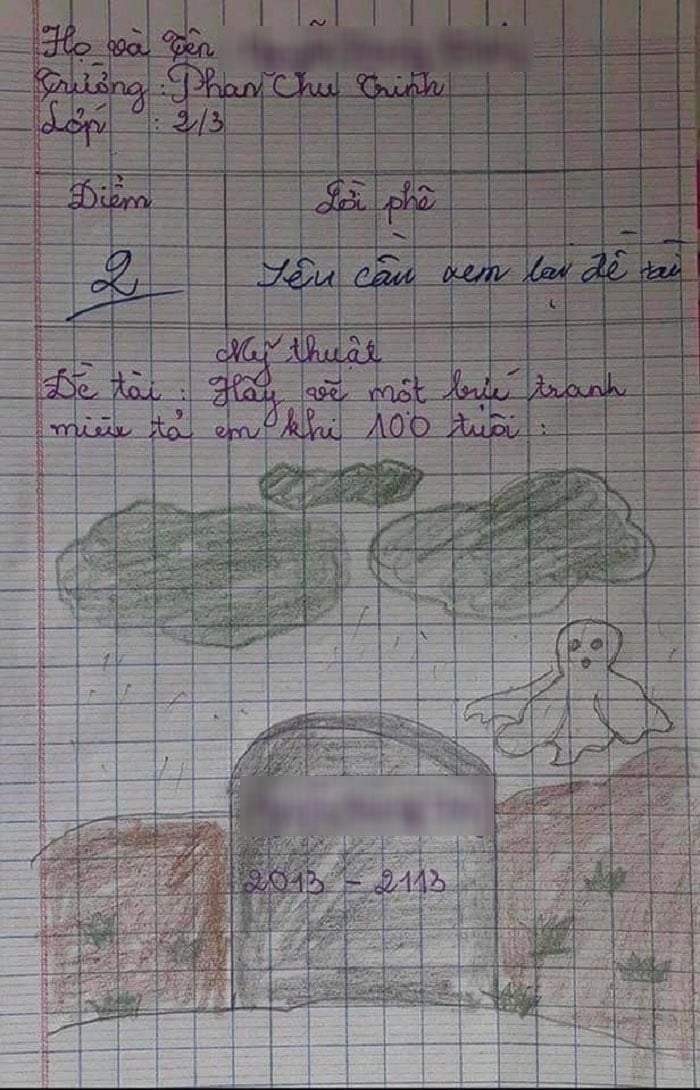 Họ và tên
Trường : Phan Chu Trinh
Lớp : 2/3
Điểm Lời phê
2 Yêu cầu xem lại đề tài
Mỹ thuật
Đề tài : Hãy vẽ một bức tranh
miêu tả em khi 100 tuổi :
2013 - 2113